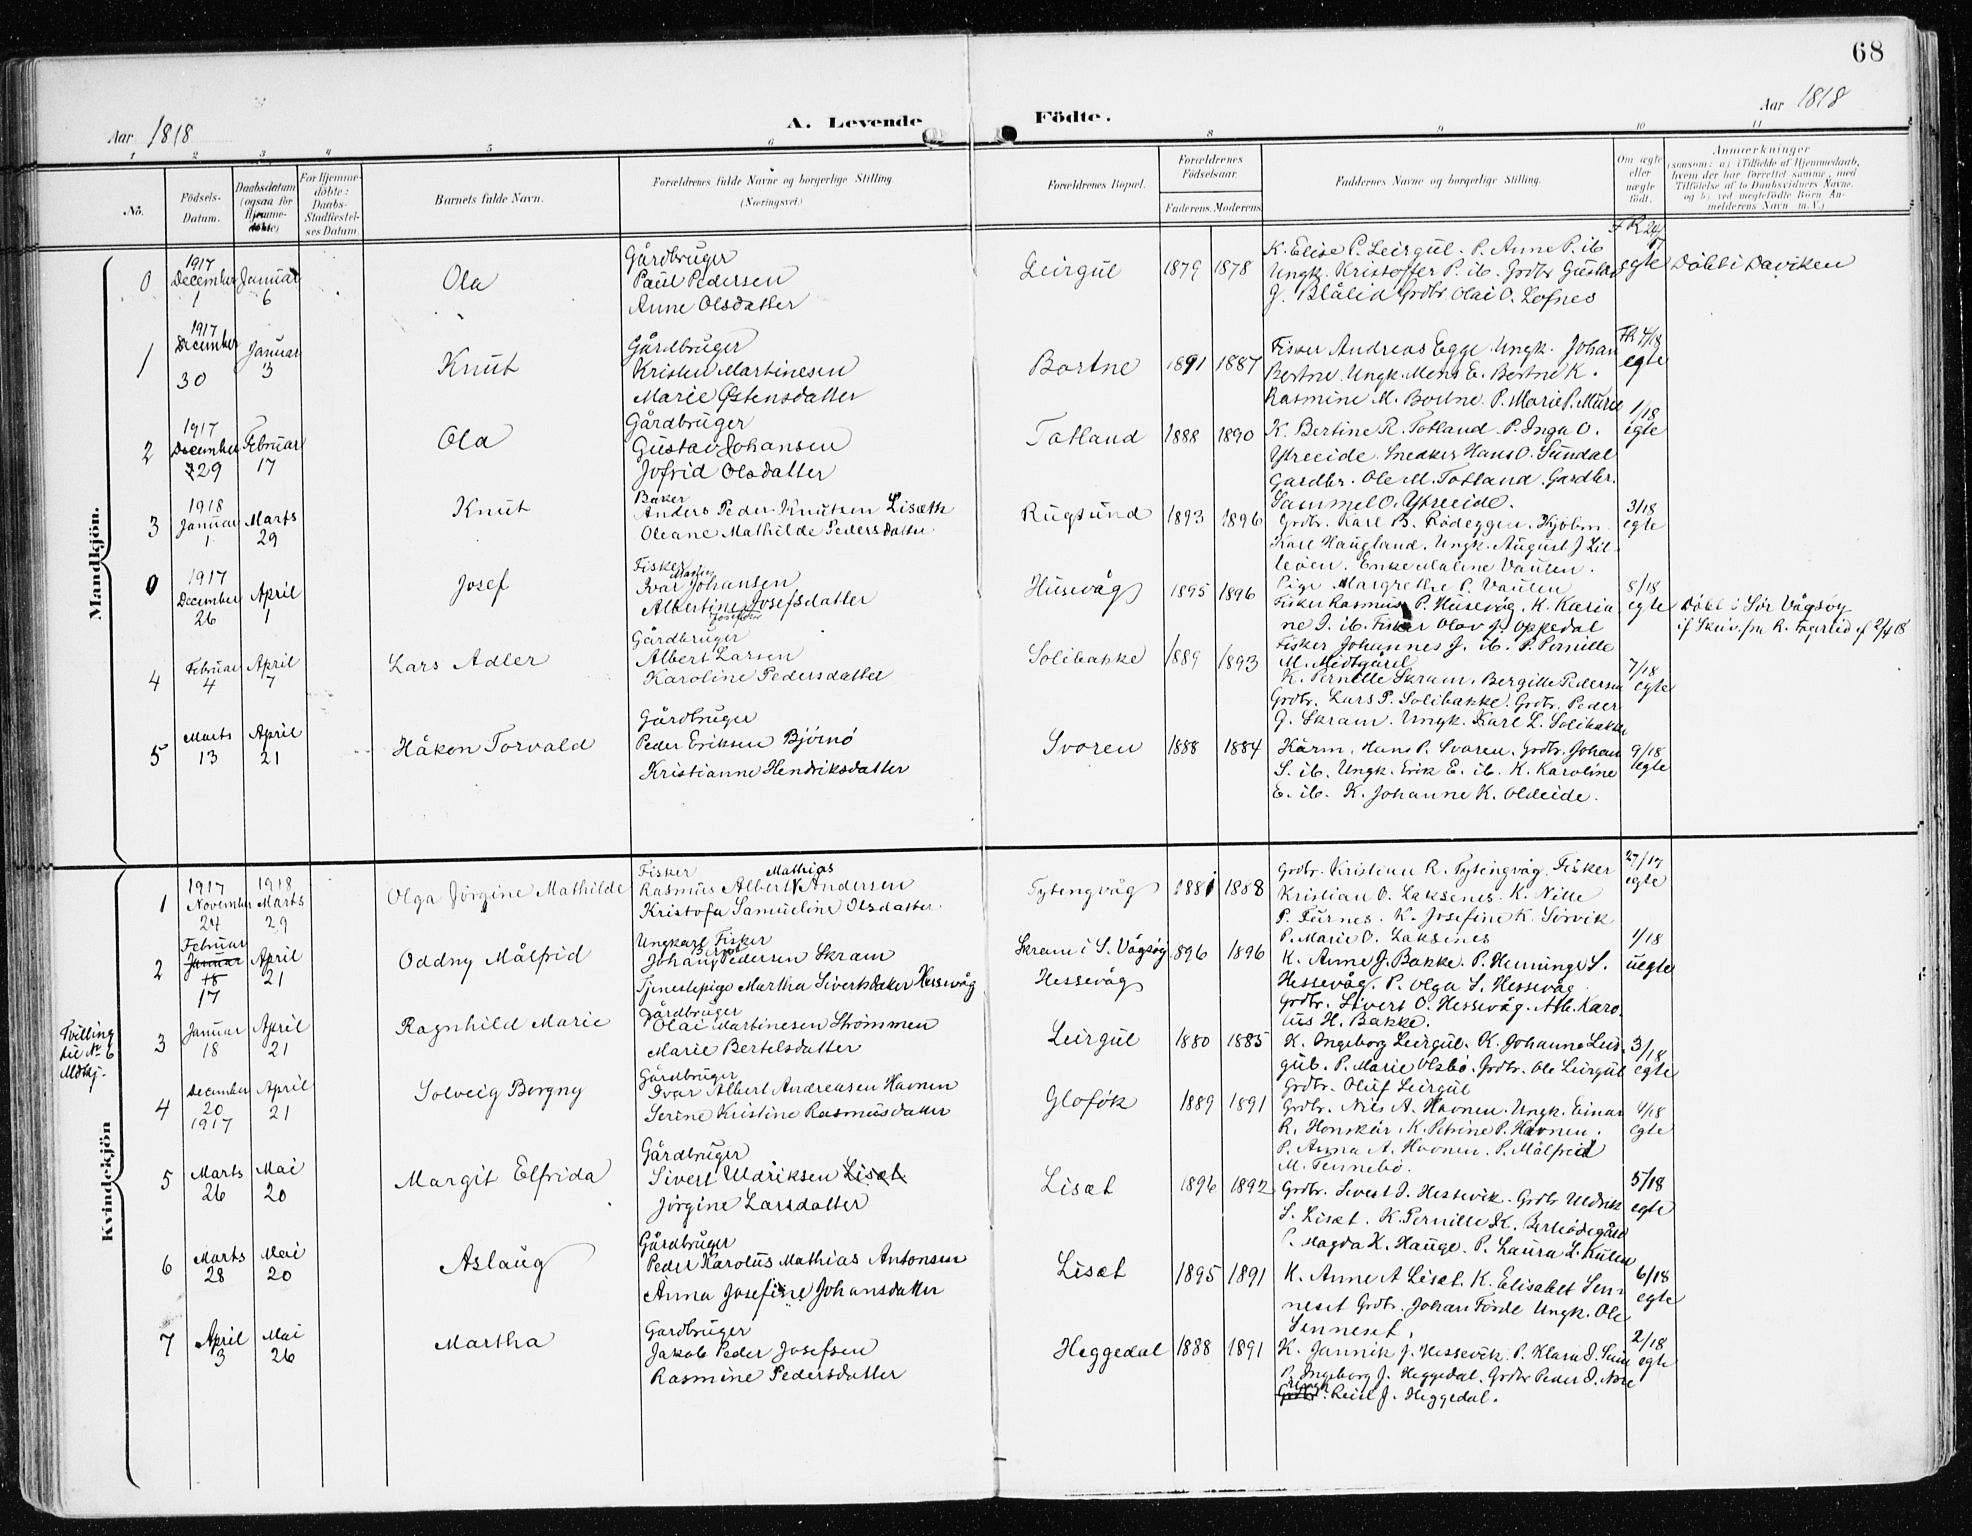 68
Aar 1818
A. Levende Födte.
Aar 1818
1 2 3 4 5 6 8 9 10 11
No.
Födsels-
Datum.
Daabsdatum
(ogsaa for
Hjemme-
døbte)
For Hjemme-
døbte:
Daabs-
Stadfæstel-
ses Datum
Barnets fulde Navn.
Forældrenes fulde Navne og borgerlige Stilling.
(Næringsvei.)
Forældrenes Bopæl.
Forældrenes
Födselsaar.
Faderens. Moderens
Faddernes Navne og borgerlige Stilling.
Om ægte
eller
uægte
født.
Anmærkninger
(saasom: a) i Tilfælde af Hjemmedaab,
hvem der har forrettet samme, med
Tilföielse af to Daabsvidners Navne,
og b) ved uegtefødte Börn An-
melderens Navn m. V.)
Mandkjön.
0
1917
December
1
Januar
6
Ola
Gårdbruger
Paul Pedersen
Anne Olsdatter
Leirgul
1879 1878
K. Elise P. Leirgul. P. Anne P. ib
Ungk. Kristoffer P. ib. Grdbr Gustav
J. Blålid Grdbr. Olai O. Lofnes
egte
Döbt i Daviken
1
1917
December
30
Januar
3
Knut
Gårdbruger
Kristen Martinesen
Marie Østensdatter
Bortne
1891 1887
Fisker Andreas Egge. Ungk. Johan
Bortne. Ungk. Mons E. Bortne K.
Rasmine M. Bortne. P. Marie P. Mure
FR 4/18
egte
2
1917
December
29
Februar
17
Ola
Gårdbruger
Gustav Johansen
Jofrid Olsdatter
Totland
1888 1890
K. Bertine R. Totland. P. Inga O.
Ytreeide. Snedker Hans O. Sundal
Gardbr. Ole M. Totland. Gardbr.
Sammel O. Ytreeide.
1/18
egte
3
1918
Januar
1
Marts
29
Knut
Baker
Anders Peder Knutsen Lisæth
Oleane Mathilde Pedersdatter
Rugsund
1893 1896
Grdbr. Karl B. Rödeggen. Kjøbm.
Karl Haugland. Ungk. August J Lil-
leöen. Enke Maline Vaulen.
Pige Margrethe P. Vaulen
3/18
egte
0
1917
December
26
April
1
Josef
Fisker
Ivar Martin Johansen
Albertine Josefsdatter
Husevåg
1895 1896
Fisker Rasmus P. Husevåg. K. Karia
ne J. ib. Fisker Olav J. Oppedal
Fisker Johannes J. ib. P. Pernille
M. Midtgård
8/18
egte
Döbt i Sör Vågsöy
4
Februar
4
April
7
Lars Adler
Gårdbruger
Albert Larsen
Karoline Pedersdatter
Solibakke
1889 1893
K. Pernille Skram. Bergitte Pedersen
Grdbr. Lars P. Solibakke. Grdbr. Peder
G. Skram. Ungk. Karl L. Solibakke
7/18
egte
5
Marts
13
April
21
Håkon Torvald
Gårdbruger
Peder Eriksen Bjørnö
Kristianne Hendriksdatter
Svoren
1888 1884
Kårm. Hans P. Svoren. Grdbr. Johan
S. ib. Ungk. Erik E. ib. K. Karoline
E. ib. K. Johanne K. Oldeide.
9/18
egte
Kvindekjön
1
1917
November
24
1918
Marts
29
Olga Jörgine Mathilde
Fisker
Rasmus Albert Mathias Andersen
Kristofa Samueline Olsdatter
Tytengvåg
1881 1888
Grdbr. Kristian R. Tytingvåg. Fisker
Kristian O. Laksenes. K. Nille
P. Furnes. K. Josefine K. Sörvik
P. Marie O. Laksenes
27/17
egte
2
Februar
Januar
18
17
April
21
Oddny Målfrid
Ungkarl Fisker
Johan Pedersen Skram
Tjenestepige Martha Sivertsdatter Hessevåg
Skram i S. Vågsöy
Hessevåg
1896 1896
K. Anne J. Bakke. P. Henninge S.
Hessevåg. P. Olga S. Hessevåg
Grdbr. Sivert O. Hessevåg. Arb. Karo
lus H. Bakke.
1/18
uegte
Tvilling
til No 6
Mdkj.
3
Januar
18
April
21
Ragnhild Marie
Gårdbruger
Olai Martinesen Strömmen
Marie Bertelsdatter
Leirgul
1880 1885
K. Ingeborg Leirgul. K. Johanne Leir-
gul. P. Marie Olsbö. Grdbr. Ole Leirgul
Grdbr. Oluf Leirgul
3/18
egte
4
December
20
1917
April
21
Solveig Borgny
Gårdbruger
Ivar Albert Andreasen Havnen
Serine Kristine Rasmusdatter
Gloføk
1889 1891
Grdbr. Nils A. Havnen. Ungk. Einar
R. Honskår. K. Petrine P. Havnen.
P. Anna A. Havnen. P. Målfrid
M. Tennebö.
4/18
egte
5
Marts
26
Mai
20
Margit Elfrida
Gårdbruger
Sivert Uldriksen Lisæt
Jörgine Larsdatter
Lisæt
1896 1892
Grdbr. Sivert J. Hessevik. Grdbr Uldrik
S. Lisæt. K. Pernille K.
P. Magda K. Hauge. P. Laura L.
5/18
egte
6
Marts
28
Mai
20
Aslaug
Gårdbruger
Peder Karolus Mathias Antonsen
Anna Josefine Johansdatter
Lisæt
1895 1891
K. Anne A Lisæt. K. Elisabet Sen-
neset Grdbr. Johan Förde Ungk. Ole
Senneset.
6/18
egte
7
April
3
Mai
26
Martha
Gardbruger
Jakob Peder Josefsen
Rasmine Pedersdatter
Heggedal
1888 1891
K. Jannik J. Hessevik. P. Klara J.
P. Ingeborg J. Heggedal. Grdbr Peder J. Nore
Grdbr. J. Heggedal.
2/18
egte